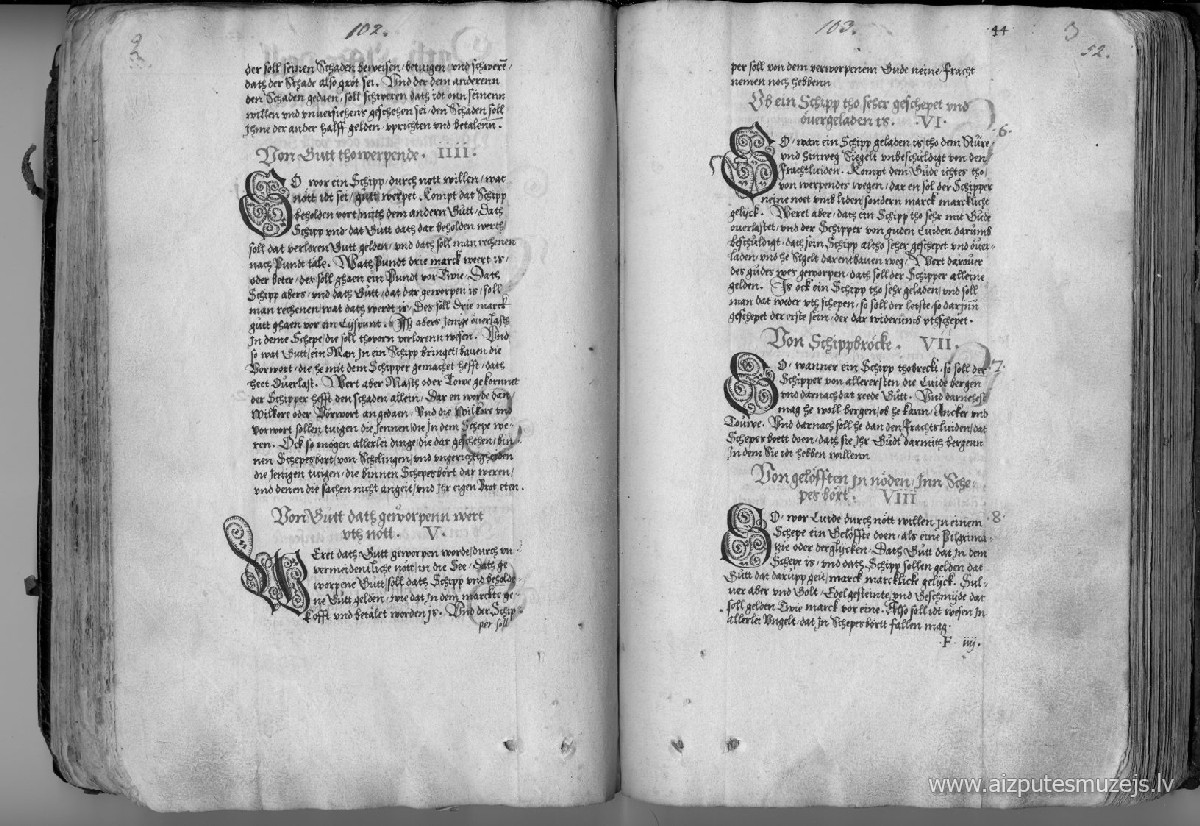 102.
der soll seinen Schaden beweisen, betuigen, vnd schwerē,
dath der Schade also grot sei. Vnd der dem anderenn
den Schaden gedaen, soll schweren dath idt ann seinenn
willen vnd vnuersehens geschehen sei, den Schaden soll
ihme der ander halff gelden, vprichten vnd betalenn.
Von Gutt tho werpende. IIII.
SO wor ein Schipp, durch nott willen, wat
nott idt sei, gutt werpet. Kompt dat Schipp
beholden vort, mith dem andern Gutt, Dath
Schipp vnd dat Gutt dath dar beholden werth
soll dat verloren Gutt gelden, vnd dath soll man rechenen
nach Pundt tale. Wath Pundt drie marck wert is,
oder beter, der soll ghaen ein Pundt vor twie. Dath
Schip abers, vnd dath Gutt, dat dar geworpen is, soll
man rechenen wat dath werdt is, Des soll drie marck
gutt ghaen vor ein Lißpunt. Iß abers jenige ouerlasth
In deme Schepe, die soll thovorn verlorenn wesen. Vnd
so wat Gutt, ein Man in ein Schipp bringet, bauen die
Vorwort, die he mit dem Schipper gemachet hefft, dath
heet Ouerlast. Wert aber Masth oder Towe gekommet
der Schipper hefft den schaden allein, Dar en werde dan
Wilkert oder Vorwort an gedaen, Vnd die Wilkert vnd
vorwort sollen tuigen die jennen, die in dem Schepe we-
ren. Ock so mögen allerlei dinge, die dar geschehen, bin-
nen Schepesbort, von Schelingen, vnd vngerichtigheiden
die jenigen tuigen, die binnen Schepesbört dar weren,
vnd denen die sachen nicht angeit, vnd ihr eigen Brot eten.
Von Gutt dath geworpenn wert
vth nott. V.
WEret dath Gutt geworpen worde, durch vn-
vermeidentliche nott, in die See, Dath ge-
worpene Gutt, soll dath Schipp vnd beholde
ne Gutt gelden, wie dat in dem marckte ge-
kofft vnd betalet worden is. Vnd der Schip-
per soll
103.
44
3
52.
per soll von dem verworpenem Gude neine fracht
nemen noch hebbenn
Ob ein Schipp tho seher geschepet vnd
ouergeladen is. VI.
6.
SO, wan ein Schipp geladen is, tho dem Stüre
vnd hinweg Segelt vnbeschuldigt von den
frachtluiden. Kompt dem Gude ichter tho,
von werpender wegen, dar en sol der Schipper
neine nott vmb liden, sondern marck marcklicke
gelyck. Weret aber, dath ein Schipp tho sehr mit Gude
ouerlastet, vnd der Schipper von guden Luiden darumb
beschuldigt, dath sein Schipp altho seher geschepet vnd ouer-
laden, vnd he Segelt darentbauen weg, Wert daruuer
der güder wes geworpen, dath soll der Schipper alleine
gelden. Is ock ein Schipp tho sehr geladen, vnd soll
man dat weder vth schepen, so soll der leste, so darinn
geschepet der erste sein, der dar wederumb vthschepet.
Von Schippbröcke. VII.
7.
SO, wanner ein Schipp thobreckt, so soll der
Schipper von allerersten die Luide bergen
vnd darnach dat reede Gutt. Vnd darnehest
mag he woll bergen, ob he kann, Ancker vnd
Touwe. Vnd darnach soll he dan den frachtsluiden, dat
Schepes brett doen, dath sie ihr Gudt darmith bergenn
in dem Sie idt hebben willenn
Von gelöfften in nöden, Inn Sche-
pes bört. VIII
8.
SO, wor Luide durch nott willen, in einem
Schepe ein Gelöffte doen, als eine Pilgrima-
tzie oder derglycken, Dath Gutt dat in dem
Schepe is, vnd dath Schipp sollen gelden dat
Gutt dat darupp geit, marck marcklicke gelyck. Sul-
uer aber vnd Golt, Edelgesteinte, vnd Geschmijde dat
soll gelden twie marck vor eine. Also soll idt wesen in
allerlei Vngelt, dat in Schepesbörtt fallen mag.
F iiij.
www.aizputesmuzejs.lv